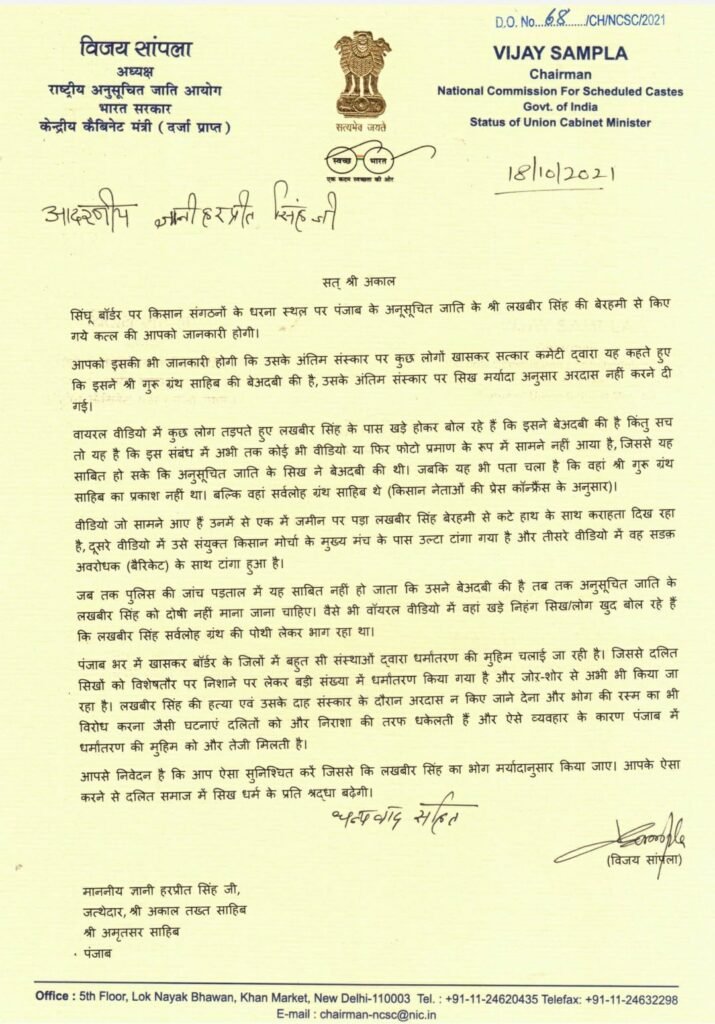 D.O. No...68.../CH/NCSC/2021
विजय सांपला
अध्यक्ष
राष्ट्रीय अनुसूचित जाति आयोग
भारत सरकार
केन्द्रीय कैबिनेट मंत्री ( दर्जा प्राप्त )
सत्यमेव जयते
स्वच्छ भारत
एक कदम स्वच्छता की ओर
VIJAY SAMPLA
Chairman
National Commission For Scheduled Castes
Govt. of India
Status of Union Cabinet Minister
18/10/2021
आदरणीय ज्ञानी हरप्रीत सिंह जी
सत् श्री अकाल
सिंघू बॉर्डर पर किसान संगठनों के धरना स्थल पर पंजाब के अनूसूचित जाति के श्री लखबीर सिंह की बेरहमी से किए
गये कत्ल की आपको जानकारी होगी।
आपको इसकी भी जानकारी होगी कि उसके अंतिम संस्कार पर कुछ लोगों खासकर सत्कार कमेटी द्वारा यह कहते हुए
कि इसने श्री गुरू ग्रंथ साहिब की बेअदबी की है, उसके अंतिम संस्कार पर सिख मर्यादा अनुसार अरदास नहीं करने दी
गई।
वायरल वीडियो में कुछ लोग तड़पते हुए लखबीर सिंह के पास खड़े होकर बोल रहे हैं कि इसने बेअदबी की है किंतु सच
तो यह है कि इस संबंध में अभी तक कोई भी वीडियो या फिर फोटो प्रमाण के रूप में सामने नहीं आया है, जिससे यह
साबित हो सके कि अनुसूचित जाति के सिख ने बेअदबी की थी। जबकि यह भी पता चला है कि वहां श्री गुरू ग्रंथ
साहिब का प्रकाश नहीं था। बल्कि वहां सर्वलोह ग्रंथ साहिब थे (किसान नेताओं की प्रेस कॉन्फ्रैंस के अनुसार)।
वीडियो जो सामने आए हैं उनमें से एक में जमीन पर पड़ा लखबीर सिंह बेरहमी से कटे हाथ के साथ कराहता दिख रहा
है, दूसरे वीडियो में उसे संयुक्त किसान मोर्चा के मुख्य मंच के पास उल्टा टांगा गया है और तीसरे वीडियो में वह सडक़
अवरोधक (बैरिकेट) के साथ टांगा हुआ है।
जब तक पुलिस की जांच पड़ताल में यह साबित नहीं हो जाता कि उसने बेअदबी की है तब तक अनुसूचित जाति के
लखबीर सिंह को दोषी नहीं माना जाना चाहिए। वैसे भी वॉयरल वीडियो में वहां खड़े निहंग सिख/लोग खुद बोल रहे हैं
कि लखबीर सिंह सर्वलोह ग्रंथ की पोथी लेकर भाग रहा था।
पंजाब भर में खासकर बॉर्डर के जिलों में बहुत सी संस्थाओं द्वारा धर्मातरण की मुहिम चलाई जा रही है। जिससे दलित
सिखों को विशेषतौर पर निशाने पर लेकर बड़ी संख्या में धर्मातरण किया गया है और जोर-शोर से अभी भी किया जा
रहा है। लखबीर सिंह की हत्या एवं उसके दाह संस्कार के दौरान अरदास न किए जाने देना और भोग की रस्म का भी
विरोध करना जैसी घटनाएं दलितों को और निराशा की तरफ धकेलती हैं और ऐसे व्यवहार के कारण पंजाब में
धर्मातरण की मुहिम को और तेजी मिलती है।
आपसे निवेदन है कि आप ऐसा सुनिश्चित करें जिससे कि लखबीर सिंह का भोग मर्यादानुसार किया जाए। आपके ऐसा
करने से दलित समाज में सिख धर्म के प्रति श्रद्धा बढ़ेगी।
धन्यवाद सहित
(विजय सांपला)
माननीय ज्ञानी हरप्रीत सिंह जी,
जत्थेदार, श्री अकाल तख्त साहिब
श्री अमृतसर साहिब
पंजाब
Office : 5th Floor, Lok Nayak Bhawan, Khan Market, New Delhi-110003 Tel. : +91-11-24620435 Telefax: +91-11-24632298
E-mail : chairman-ncsc@nic.in